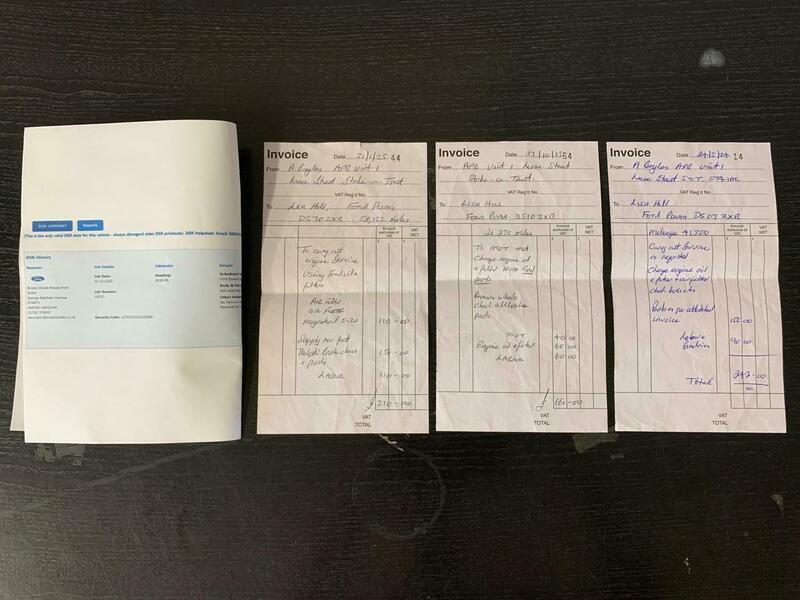 DSR SUMMARY Reports
(This is the only valid DSR data for this vehicle - always disregard older DSR printouts). DSR Helpdesk: Email:
DSR History
Repairer: Job Details Odometer Details
Ford
Bristol Street Motors Ford
Stoke
George Eastham Avenue
STAFFS
UNITED KINGDOM
Job Date:
Job Number:
Security Code:
Reading:
Invoice Date 21/1/25 44
From A Boyles APB Unit 1
Leese Street Stoke-on-Trent
VAT Reg'd No.
To Lisa Hill, Ford Puma
DS70 ZXB 58,132 miles
Amount exclusive of VAT VAT NET
To carry out
engine service
Using Ford
filters
Air Filter
Oil Filter
110-00
Supply new front
Delphi Brake discs
+ pads 150-00
Labour 110-00
£ 370-00
VAT
TOTAL
Invoice Date 27/10/23 54
From APB Unit 1 Leese Street
Stoke-on-Trent
VAT Reg'd No.
To Lisa Hill
Ford Puma DS70 ZXB
Amount exclusive of VAT VAT NET
miles
To MOT test
Change engine oil
& filter with Ford
parts
Remove wheels
check all brake
parts.
MOT 40 00
Engine oil & filter 60 00
Labour 60 00
£ 160-00
VAT
TOTAL
Invoice Date 24/5/24 14
From A Boyles APB Unit 1
Leese Street S.O.T. ST4
VAT Reg'd No.
To Lisa Hill
Ford Puma
Amount exclusive of VAT VAT NET
Mileage 41,750
Carry out Service
as reported
Change engine oil
& filter + air filter
check
Parts as per attached
invoice 152 00
Labour 90 00
Total 242-00
VAT
TOTAL